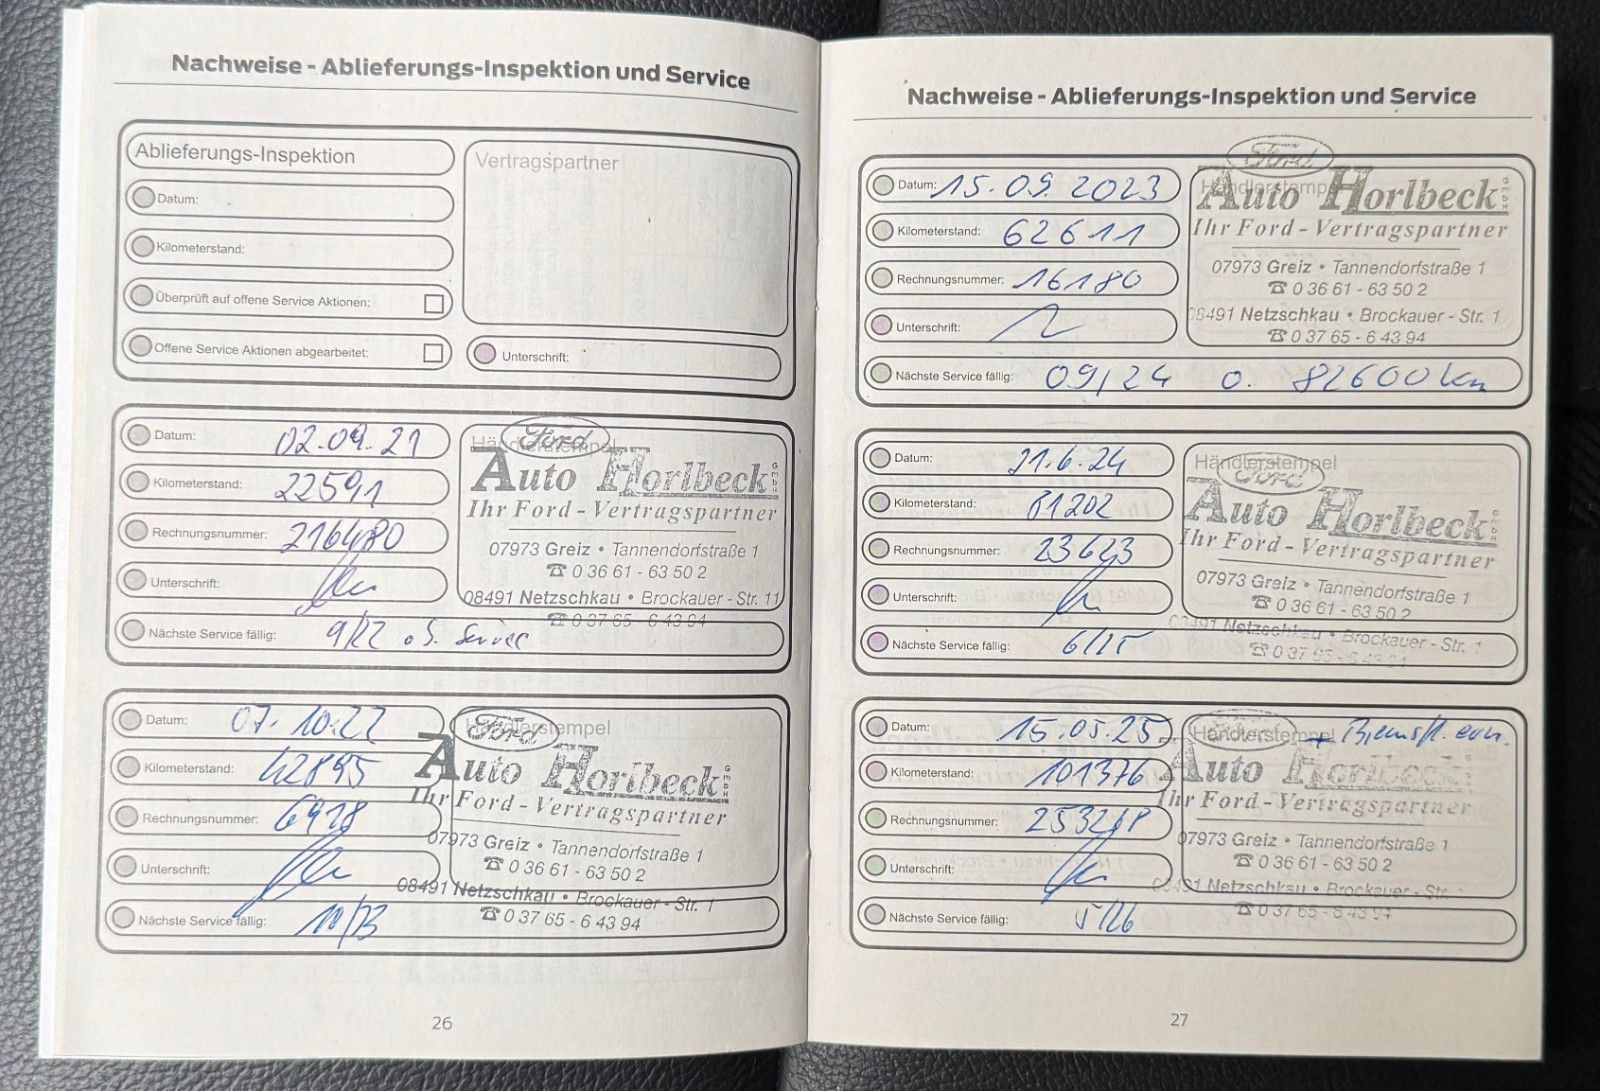 Nachweise - Ablieferungs-Inspektion und Service
Ablieferungs-Inspektion
Vertragspartner
Datum:
Kilometerstand:
Überprüft auf offene Service Aktionen:
Offene Service Aktionen abgearbeitet:
Unterschrift:
Datum: 02.09.21
Kilometerstand: 22591
Rechnungsnummer: 216480
Unterschrift:
Nächste Service fällig: 9/22 o.S. Service
Händlerstempel
Ford
Auto Horlbeck GmbH
Ihr Ford - Vertragspartner
07973 Greiz • Tannendorfstraße 1
☎ 0 36 61 - 63 50 2
08491 Netzschkau • Brockauer - Str. 11
☎ 0 37 65 - 6 43 94
Datum: 07.10.22
Kilometerstand: 42895
Rechnungsnummer: 6928
Unterschrift:
Nächste Service fällig: 10/23
Händlerstempel
Ford
Auto Horlbeck GmbH
Ihr Ford - Vertragspartner
07973 Greiz • Tannendorfstraße 1
☎ 0 36 61 - 63 50 2
08491 Netzschkau • Brockauer - Str. 1
☎ 0 37 65 - 6 43 94
26
Nachweise - Ablieferungs-Inspektion und Service
Datum: 15.09.2023
Kilometerstand: 62611
Rechnungsnummer: 16180
Unterschrift:
Nächste Service fällig: 09/24 o. 82600 km
Händlerstempel
Ford
Auto Horlbeck GmbH
Ihr Ford - Vertragspartner
07973 Greiz • Tannendorfstraße 1
☎ 0 36 61 - 63 50 2
08491 Netzschkau • Brockauer - Str. 1
☎ 0 37 65 - 6 43 94
Datum: 21.6.24
Kilometerstand: 81202
Rechnungsnummer: 23623
Unterschrift:
Nächste Service fällig: 6/25
Händlerstempel
Ford
Auto Horlbeck GmbH
Ihr Ford - Vertragspartner
07973 Greiz • Tannendorfstraße 1
☎ 0 36 61 - 63 50 2
08491 Netzschkau • Brockauer - Str. 1
☎ 0 37 65 - 6 43 94
Datum: 15.05.25
Kilometerstand: 101376
Rechnungsnummer: 253268
Unterschrift:
Nächste Service fällig: 5/26
Händlerstempel + Bremsfl. ern.
Auto Horlbeck
Ihr Ford - Vertragspartner
07973 Greiz • Tannendorfstraße 1
☎ 0 36 61 - 63 50 2
08491 Netzschkau • Brockauer - Str.
☎ 0 37 65 - 6 43 94
27